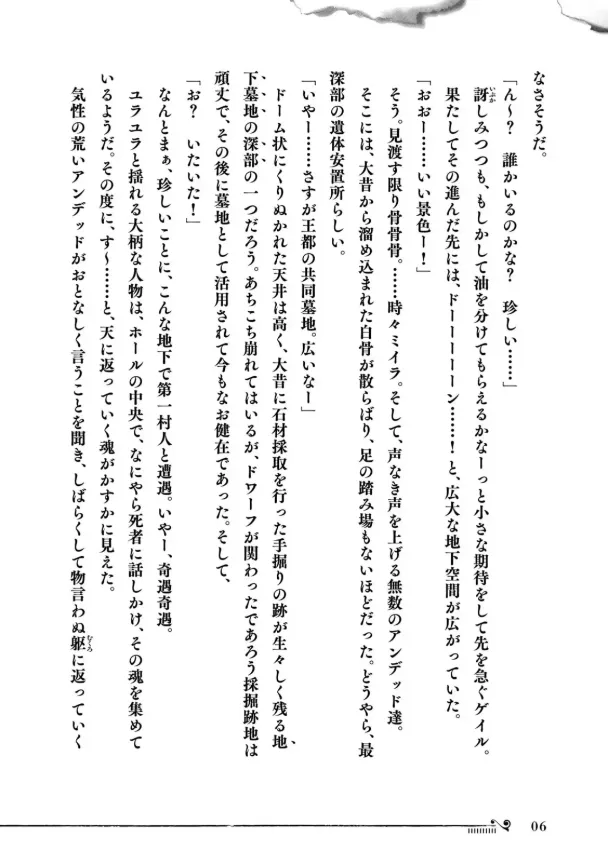 なさそうだ。
「ん～？　誰かいるのかな？　珍しい……」
訝しみつつも、もしかして油を分けてもらえるかなーっと小さな期待をして先を急ぐゲイル。
果たしてその進んだ先には、ドーーーーーン……！　と、広大な地下空間が広がっていた。
「おぉー……いい景色ー！」
そう。見渡す限り骨骨骨。……時々ミイラ。そして、声なき声を上げる無数のアンデッド達。
そこには、大昔から溜め込まれた白骨が散らばり、足の踏み場もないほどだった。どうやら、最
深部の遺体安置所らしい。
「いやー……さすが王都の共同墓地。広いなー」
ドーム状にくりぬかれた天井は高く、大昔に石材採取を行った手掘りの跡が生々しく残る地
下墓地の深部の一つだろう。あちこち崩れてはいるが、ドワーフが関わったであろう採掘跡地は
頑丈で、その後に墓地として活用されて今もなお健在であった。そして、
「お？　いたいた！」
なんとまぁ、珍しいことに、こんな地下で第一村人と遭遇。いやー、奇遇奇遇。
ユラユラと揺れる大柄な人物は、ホールの中央で、なにやら死者に話しかけ、その魂を集めて
いるようだ。その度に、す～……と、天に返っていく魂がかすかに見えた。
気性の荒いアンデッドがおとなしく言うことを聞き、しばらくして物言わぬ躯に返っていく
06